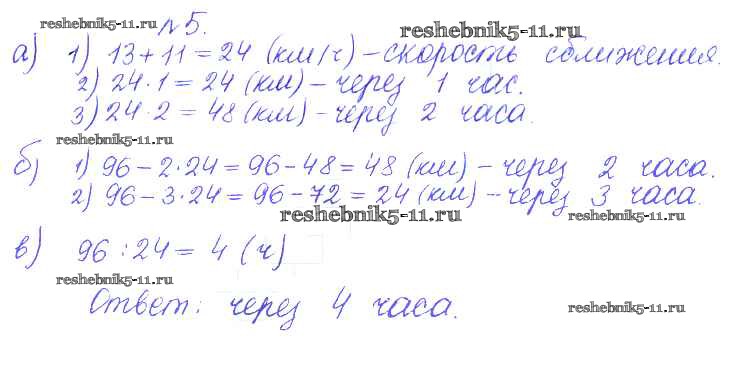 reshebnik5-11.ru №5. reshebnik5-11.ru
а) 1) 13+11=24 (км/ч) – скорость сближения.
2) 24·1=24 (км) – через 1 час.
3) 24·2=48 (км) – через 2 часа.
reshebnik5-11.ru
б) 1) 96–2·24=96–48=48 (км) – через 2 часа.
2) 96–3·24=96–72=24 (км) – через 3 часа.
reshebnik5-11.ru reshebnik5-11.ru
в) 96:24=4 (ч)
reshebnik5-11.ru
Ответ: через 4 часа. reshebnik5-11.ru